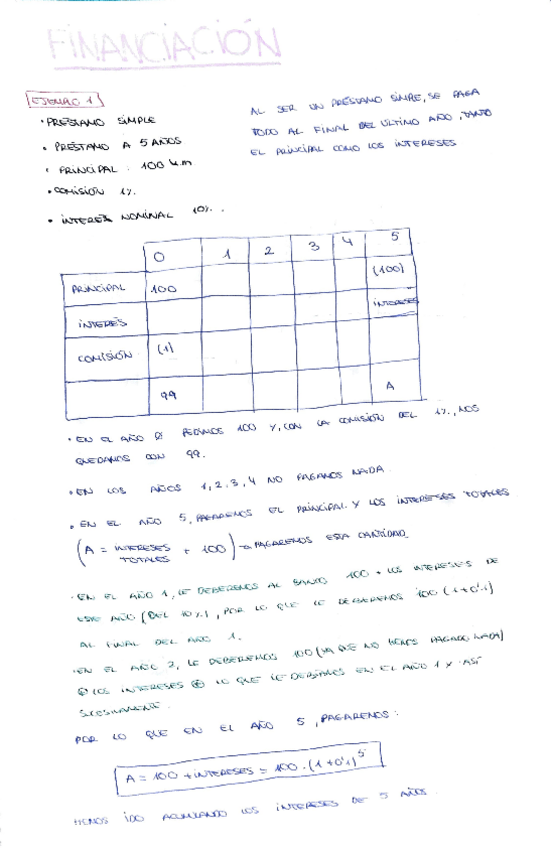 FINANCIACIÓN
EJEMPLO 1
• PRÉSTAMO SIMPLE
• PRÉSTAMO A 5 AÑOS
• PRINCIPAL: 100 u.m
• COMISIÓN 1%.
• INTERÉS NOMINAL 10%.
AL SER UN PRÉSTAMO SIMPLE, SE PAGA
TODO AL FINAL DEL ÚLTIMO AÑO, TANTO
EL PRINCIPAL COMO LOS INTERESES
0 1 2 3 4 5
PRINCIPAL 100 (100)
INTERÉS INTERESES
COMISIÓN (1)
99 A
• EN EL AÑO 0 PEDIMOS 100 Y, CON LA COMISIÓN DEL 1%, NOS
QUEDAMOS CON 99.
• EN LOS AÑOS 1, 2, 3, 4 NO PAGAMOS NADA.
• EN EL AÑO 5, PAGAREMOS EL PRINCIPAL Y LOS INTERESES TOTALES
(A = INTERESES TOTALES + 100) → PAGAREMOS ESTA CANTIDAD.
• EN EL AÑO 1, LE DEBEREMOS AL BANCO 100 + LOS INTERESES DE
ESTE AÑO (DEL 10%), POR LO QUE LE DEBEREMOS 100 (1+0'1)
AL FINAL DEL AÑO 1.
• EN EL AÑO 2, LE DEBEREMOS 100 (YA QUE NO HEMOS PAGADO NADA)
⊕ LOS INTERESES ⊕ LO QUE LE DEBÍAMOS EN EL AÑO 1 Y ASÍ
SUCESIVAMENTE.
POR LO QUE EN EL AÑO 5, PAGAREMOS:
A = 100 + INTERESES = 100 · (1+0'1)⁵
HEMOS IDO ACUMULANDO LOS INTERESES DE 5 AÑOS.